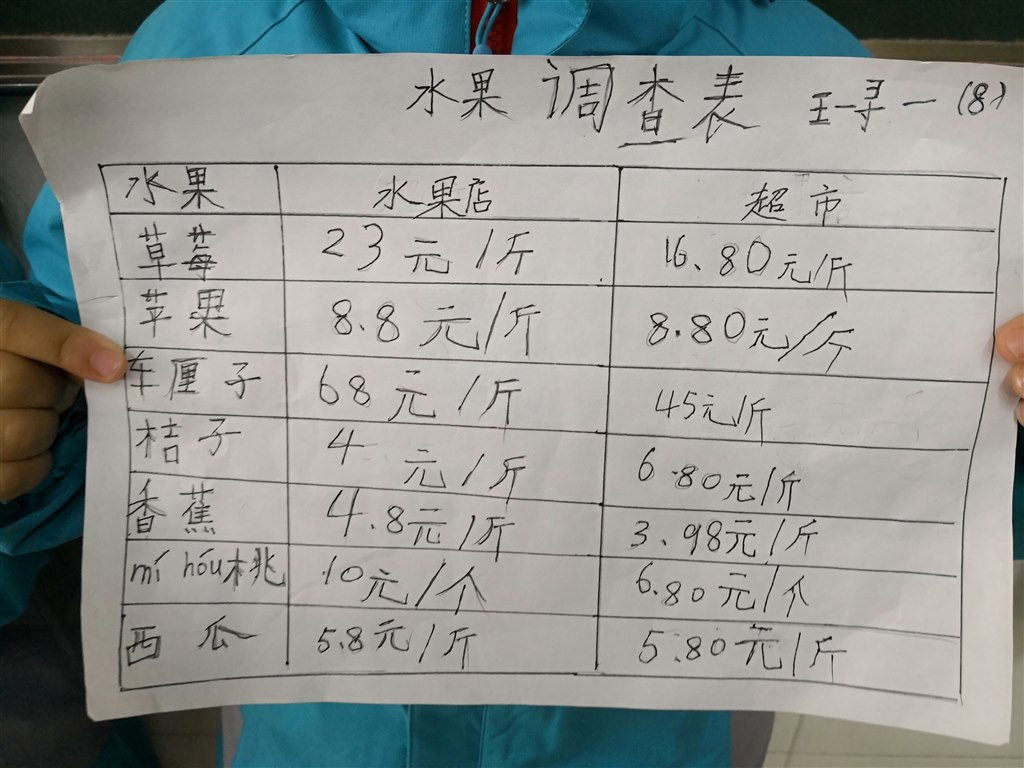 水果 调查表 王一寻 一 (8)
水果 水果店 超市
草莓 23元/斤 16.80元/斤
苹果 8.8元/斤 8.80元/斤
车厘子 68元/斤 45元/斤
桔子 4元/斤 6.80元/斤
香蕉 4.8元/斤 3.98元/斤
mí hóu桃 10元/个 6.80元/个
西瓜 5.8元/斤 5.80元/斤